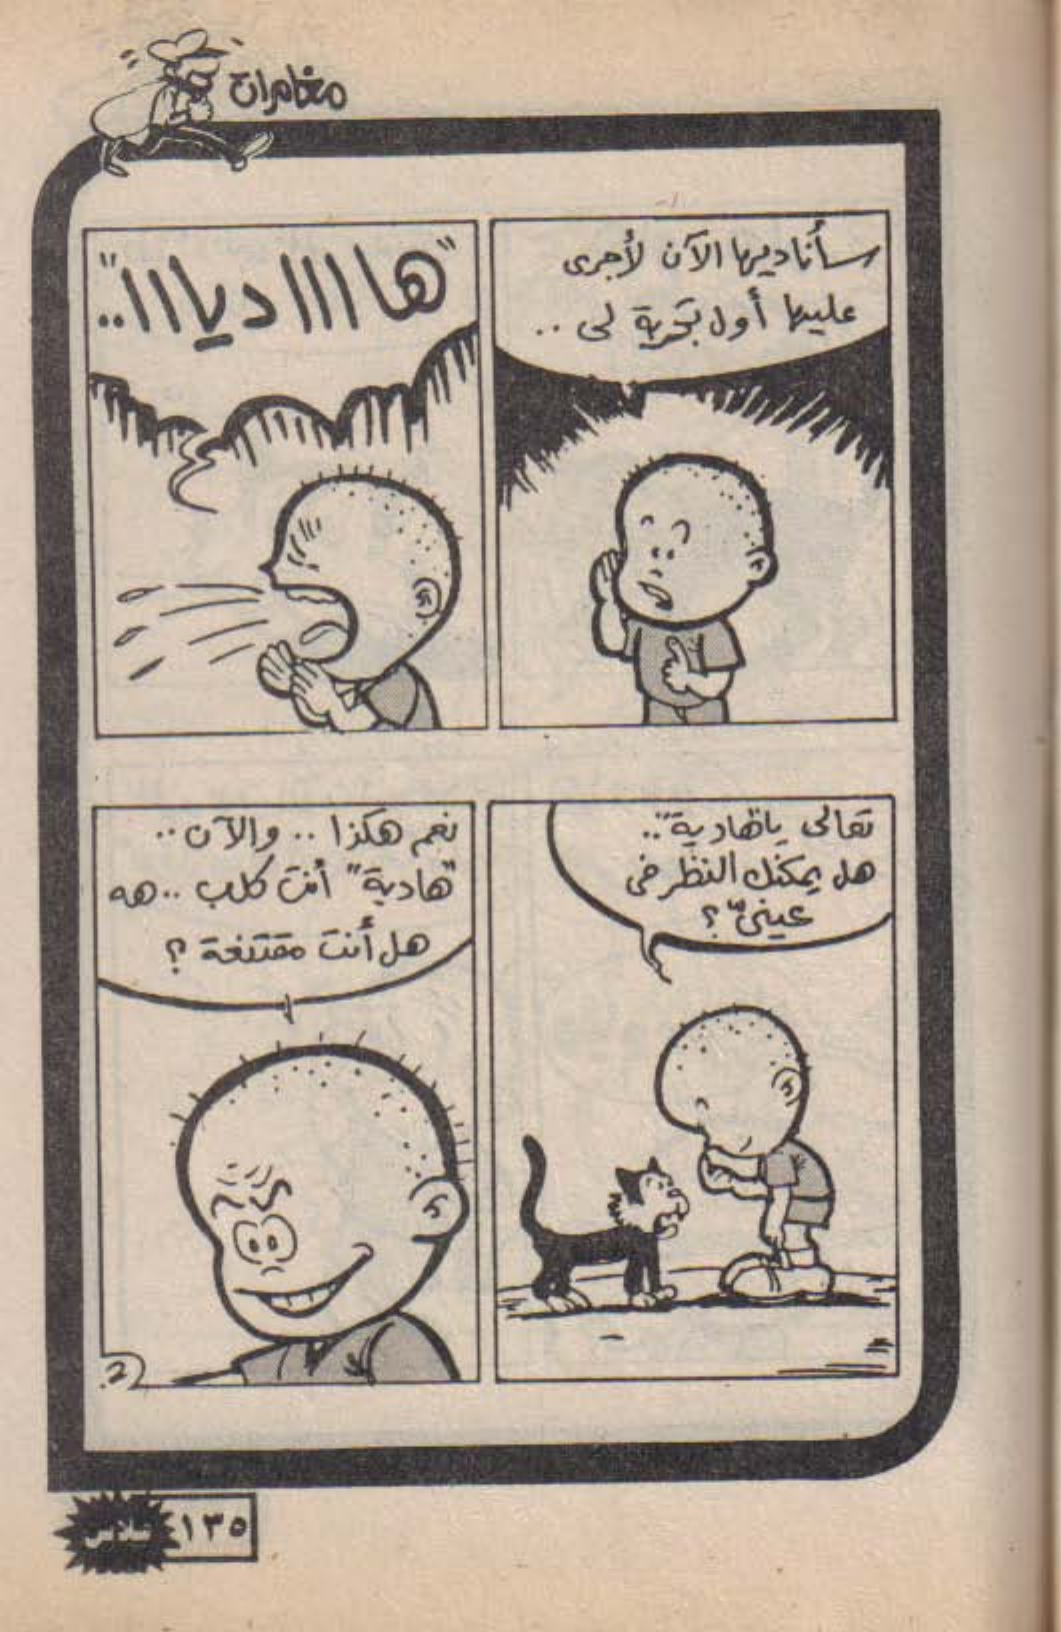 مغامرات
سأناديها الآن لأجرى
عليها أول تجربة لى ..
"هااااديااا.."
تعالى يا "هادية"..
هل يمكنك النظر فى
عينىّ ؟
نعم هكذا .. والآن ..
"هادية" أنت كلب .. هه
هل أنت مقتنعة ؟
2
١٣٥
فلاش